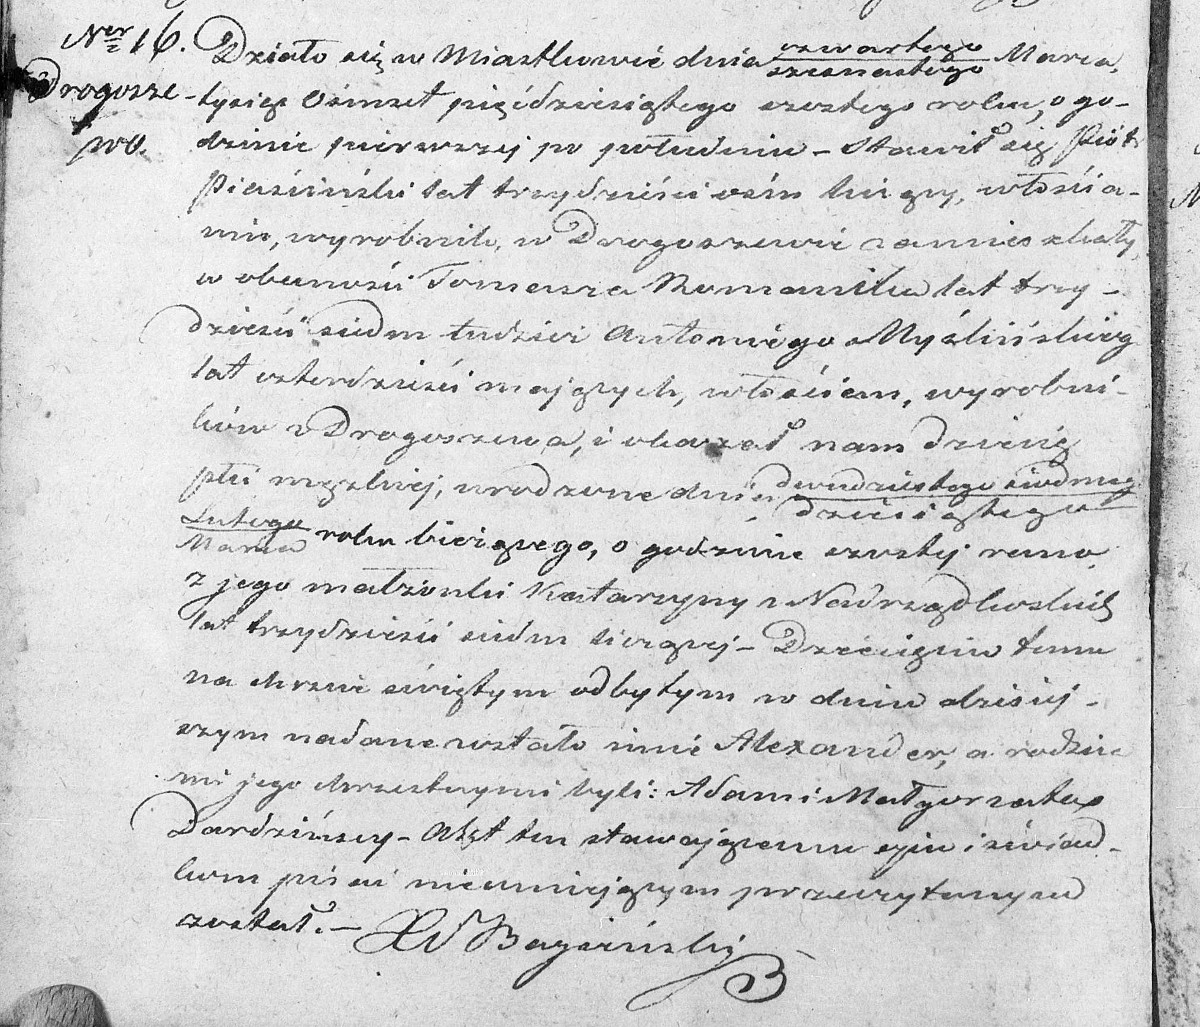 Ner 16.
Drogosze-
wo.
Działo się w Miastkowie dnia czwartego Marca,
szesnastego
tysiąc ośmset pięćdziesiątego szóstego roku, o go-
dzinie pierwszej po południu – Stawił się Piotr
Piaściński lat trzydzieści ośm liczący, włościa-
nin, wyrobnik, w Drogoszewie zamieszkały,
w obecności Tomasza Rumanika lat trzy-
dzieści siedm tudzież Antoniego Myślińskiego
lat czterdzieści mających, włościan, wyrobni-
ków z Drogoszewa, i okazał nam dziecię
płci męzkiej, urodzone dnia dwudziestego siódmego
dziesiątego
Lutego
Marca roku bieżącego, o godzinie szóstej rano,
z jego małżonki Katarzyny z Nadrządkwskich
lat trzydzieści siedm liczącej – Dziecięciu temu
na chrzcie świętym odbytym w dniu dzisiej-
szym nadane zostało imie Alexander, a rodzica
mi jego chrzestnymi byli: Adam i Małgorzata
Dardzińscy – Akt ten stawającemu ojcu i świad-
kom pisać nieumiejącym przeczytanym
został. – X W Bagiński